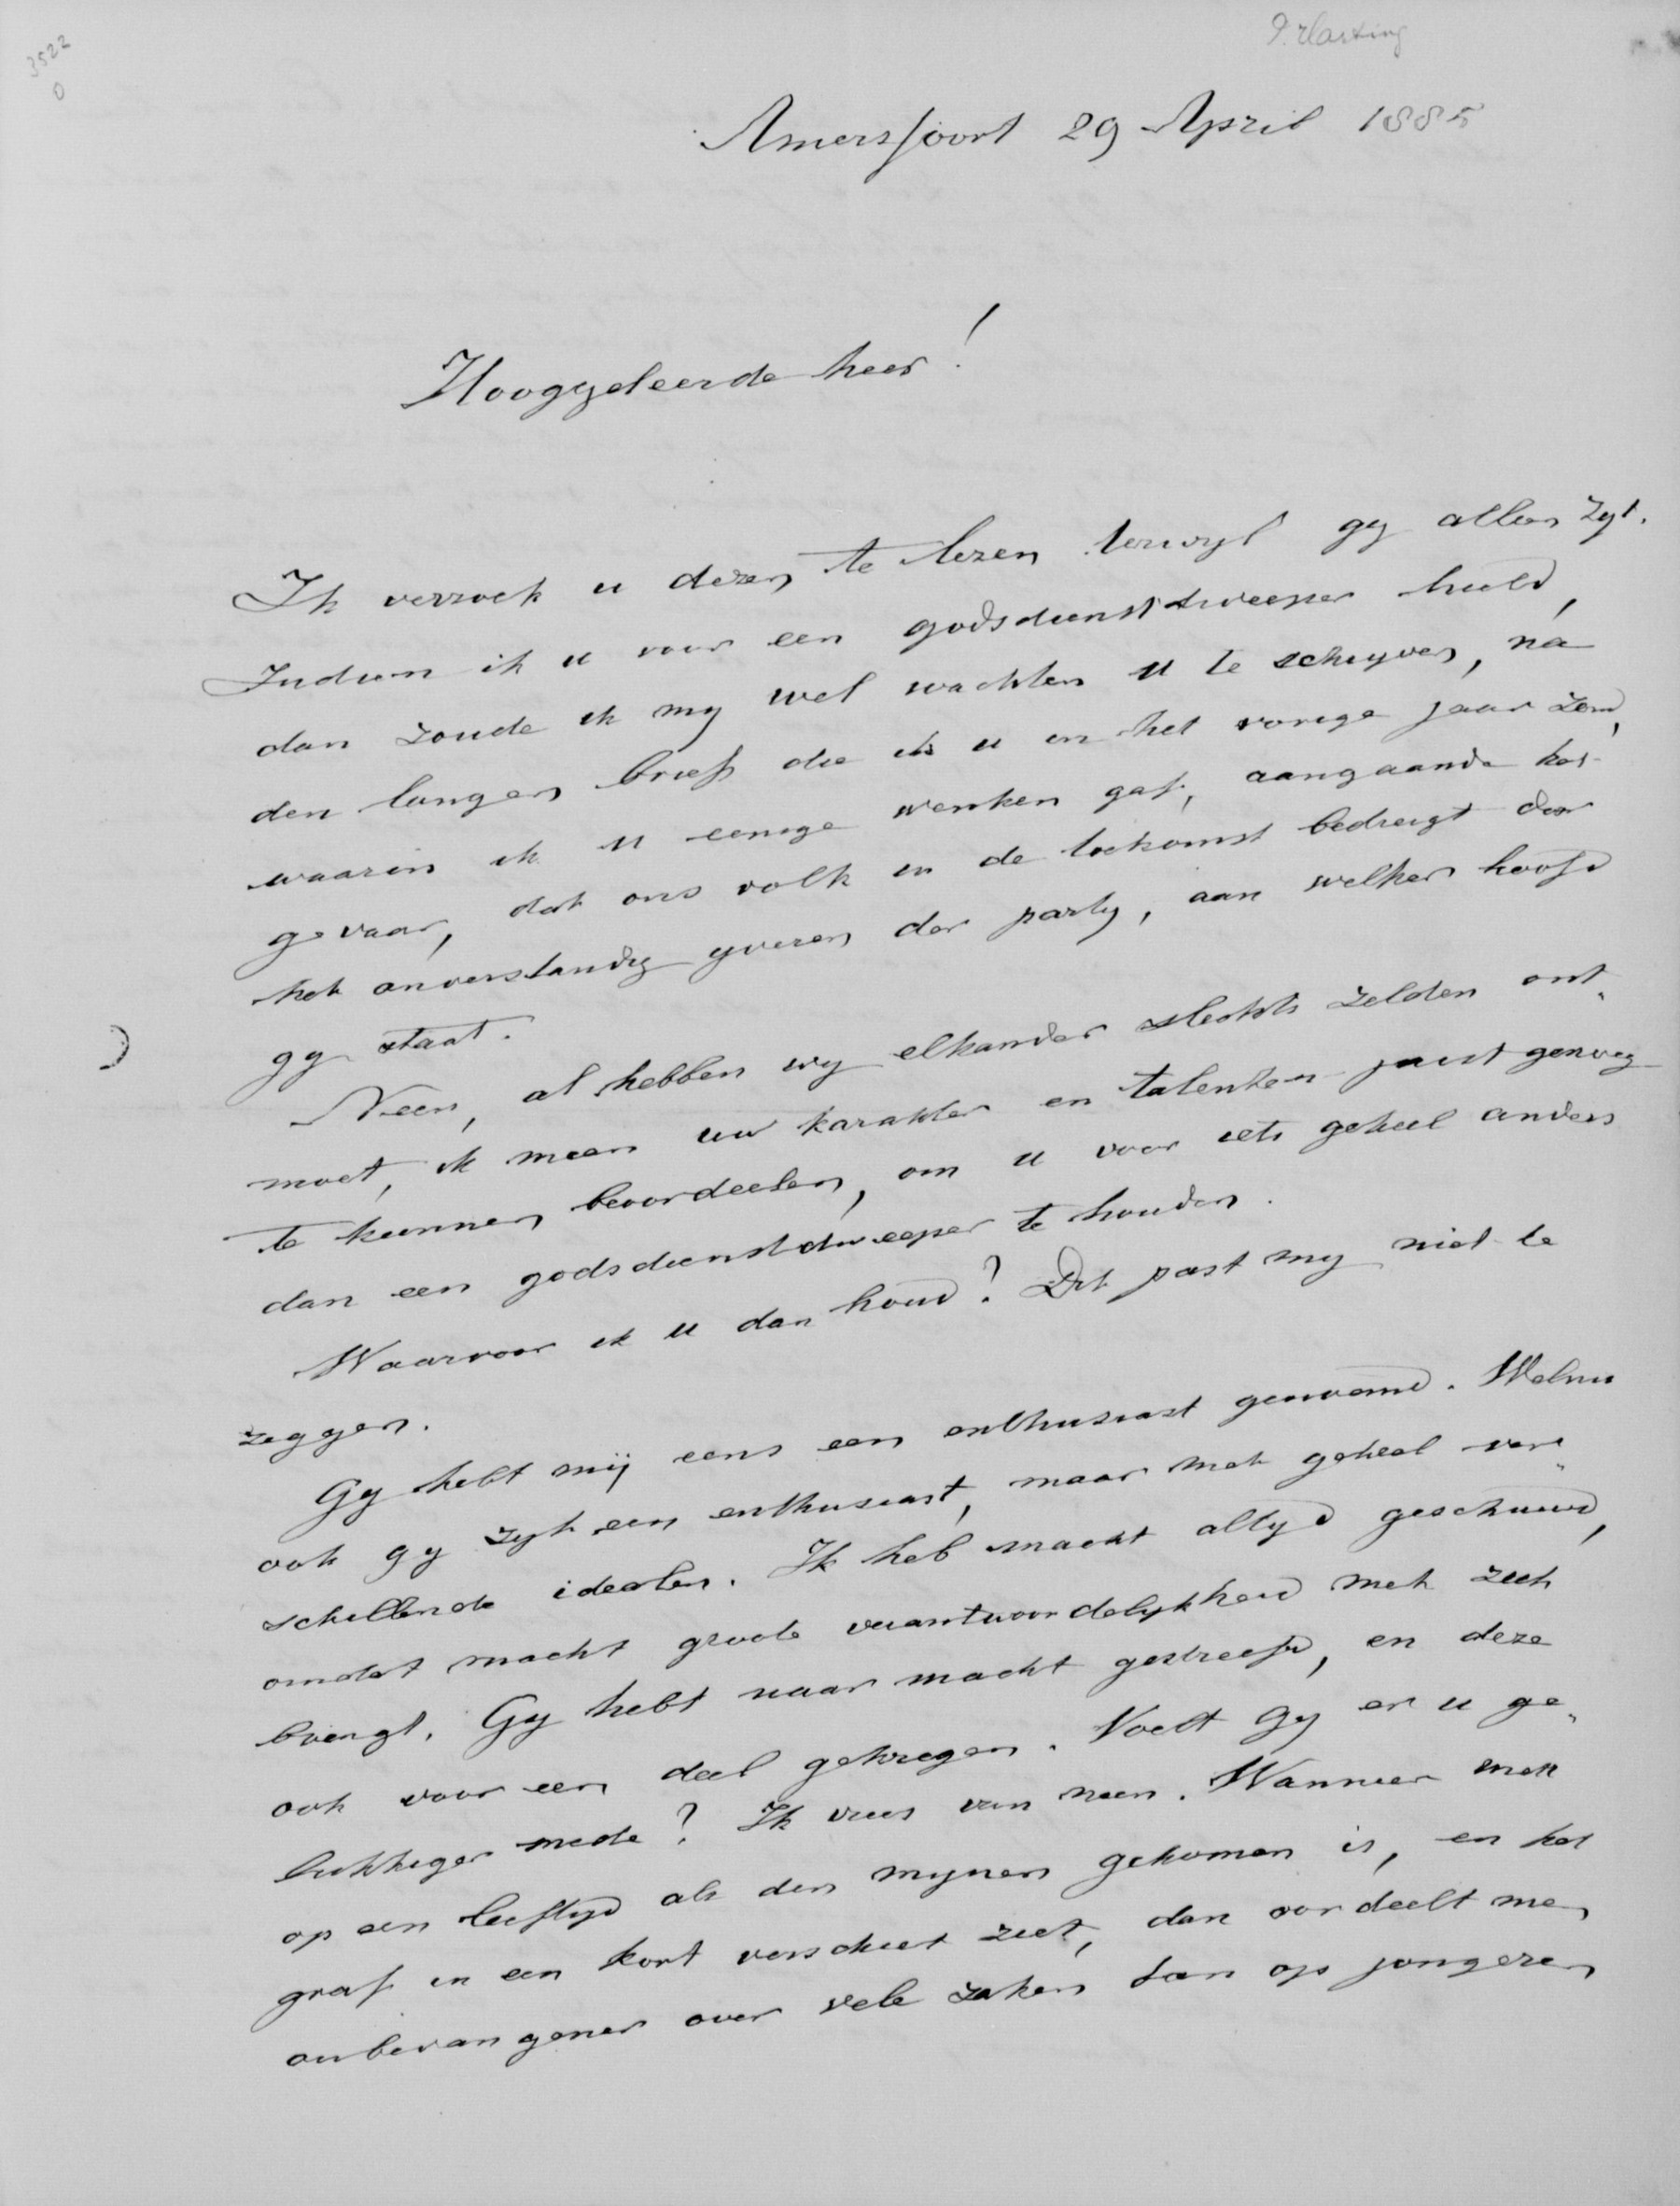 3522
0
P. Harting
Amersfoort 29 April 1885
Hooggeleerde heer!
Ik verzoek u dezen te lezen terwyl gy alleen zyt.
Indien ik u voor een godsdienstdweeper hield,
dan zoude ik my wel wachten u te schryven, na
den langen brief die ik u in het vorige jaar zond,
waarin ik u eenige wenken gaf, aangaande het
gevaar, dat ons volk in de toekomst bedreigt door
het onverstandig yveren der party, aan welker hoofd
gy staat.
Neen, al hebben wy elkander slechts zelden ont„
moet, ik meen uw karakter en talenten juist genoeg
te kunnen beoordeelen, om u voor iets geheel anders
dan een godsdienstdweeper te houden.
Waarvoor ik u dan houd? Dit past my niet te
zeggen.
Gy hebt mij eens een enthusiast genoemd. Welnu
ook gy zyt een enthusiast, maar met geheel ver„
schillende idealen. Ik heb macht altyd geschuwd,
omdat macht groote verantwoordelykheid met zich
brengt. Gy hebt naar macht gestreefd, en deze
ook voor een deel gekregen. Voelt gy er u ge„
lukkiger mede? Ik vrees van neen. Wanneer men
op een leeftyd als den mynen gekomen is, en het
graf in een kort verschiet ziet, dan oordeelt men
onbevangener over vele zaken dan op jongeren